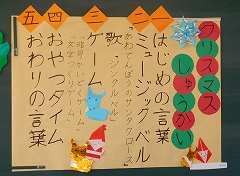 クリスマス
しゅうかい
一 はじめの言葉
二 ミュージックベル
歌
「あわてんぼうのサンタクロース」
「ジングルベル」
三 ゲーム
四 おやつタイム
五 おわりの言葉